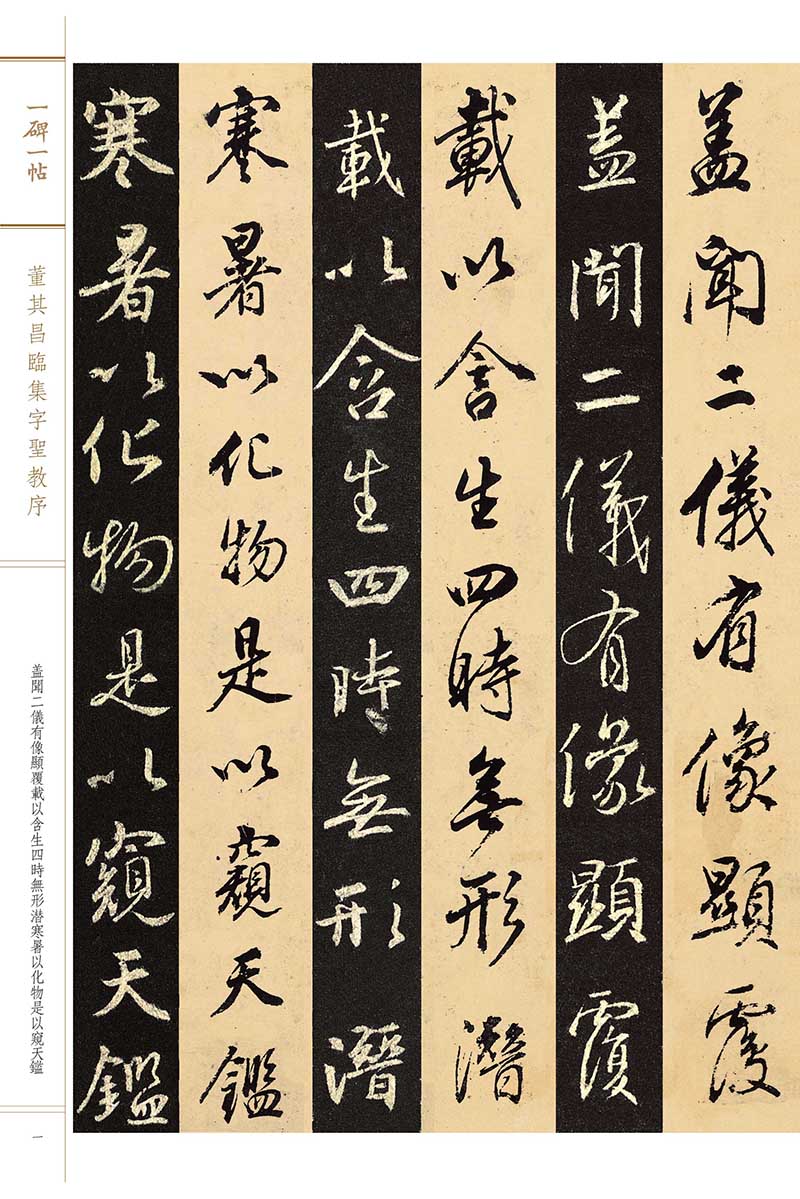 蓋聞二儀有像顯覆
盖聞二儀有像顯覆
載以含生四時無形潛
載以含生四時無形潛
寒暑以化物是以窺天鑑
寒暑以化物是以窺天鑑
一碑一帖
董其昌臨集字聖教序
盖聞二儀有像顯覆載以含生四時無形潜寒暑以化物是以窺天鑑
一